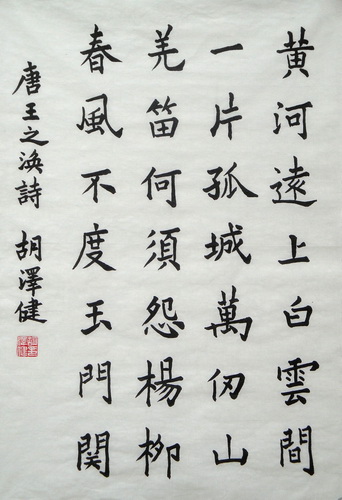 黄河遠上白雲間
一片孤城萬仞山
羌笛何須怨楊柳
春風不度玉門関
唐王之渙詩 胡澤健